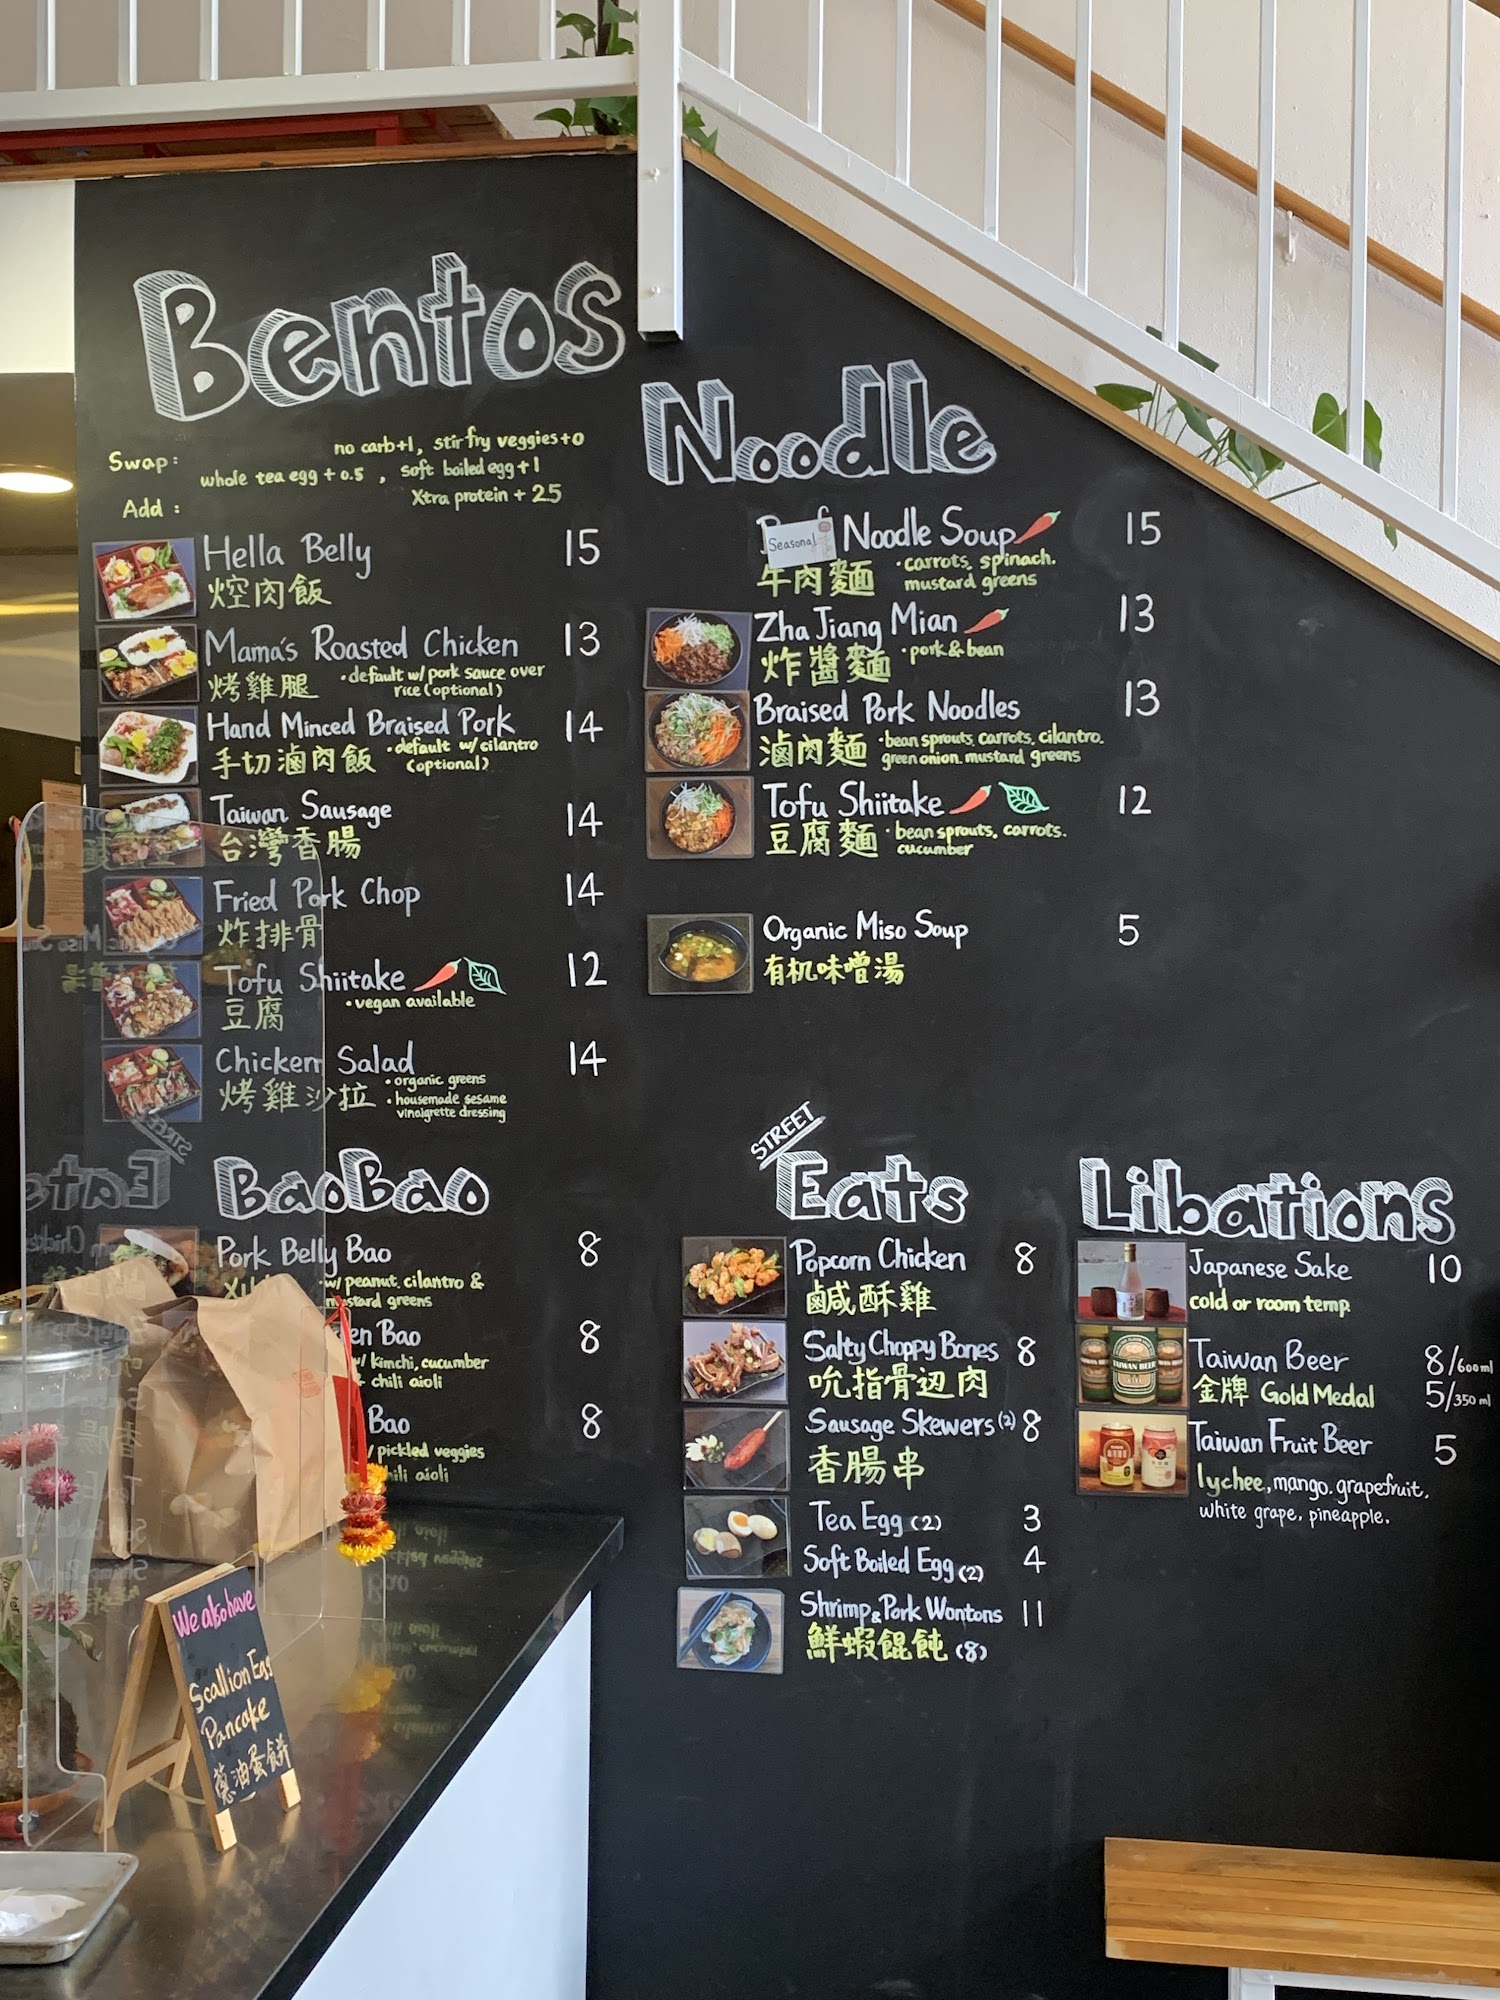 Bentos
Swap: no carb+1, stir fry veggies+0
whole tea egg + 0.5 , soft boiled egg + 1
Add : Xtra protein + 2.5
Hella Belly 15
焢肉飯
Mama's Roasted Chicken 13
烤雞腿 •default w/ pork sauce over
rice (optional)
Hand Minced Braised Pork 14
手切滷肉飯 •default w/ cilantro
(optional)
Taiwan Sausage 14
台灣香腸
Fried Pork Chop 14
炸排骨
Tofu Shiitake 12
豆腐 •vegan available
Chicken Salad 14
烤雞沙拉 •organic greens
•housemade sesame
vinaigrette dressing
BaoBao
Pork Belly Bao 8
w/ peanut, cilantro &
mustard greens
Bao 8
w/ kimchi, cucumber
& chili aioli
Bao 8
pickled veggies
aioli
Noodle
Seasonal
Noodle Soup 15
牛肉麵 •carrots, spinach.
mustard greens
Zha Jiang Mian 13
炸醬麵 •pork & bean
Braised Pork Noodles 13
滷肉麵 •bean sprouts, carrots, cilantro.
green onion. mustard greens
Tofu Shiitake 12
豆腐麵 •bean sprouts, carrots.
cucumber
Organic Miso Soup 5
有机味噌湯
STREET
Eats
Popcorn Chicken 8
鹹酥雞
Salty Choppy Bones 8
吮指骨边肉
Sausage Skewers (2) 8
香腸串
Tea Egg (2) 3
Soft Boiled Egg (2) 4
Shrimp & Pork Wontons 11
鮮蝦餛飩 (8)
Libations
Japanese Sake 10
cold or room temp.
Taiwan Beer 8/600ml
金牌 Gold Medal 5/350ml
Taiwan Fruit Beer 5
lychee, mango. grapefruit.
white grape. pineapple.
TAIWAN BEER
We also have
Scallion Egg
Pancake
蔥油蛋餅